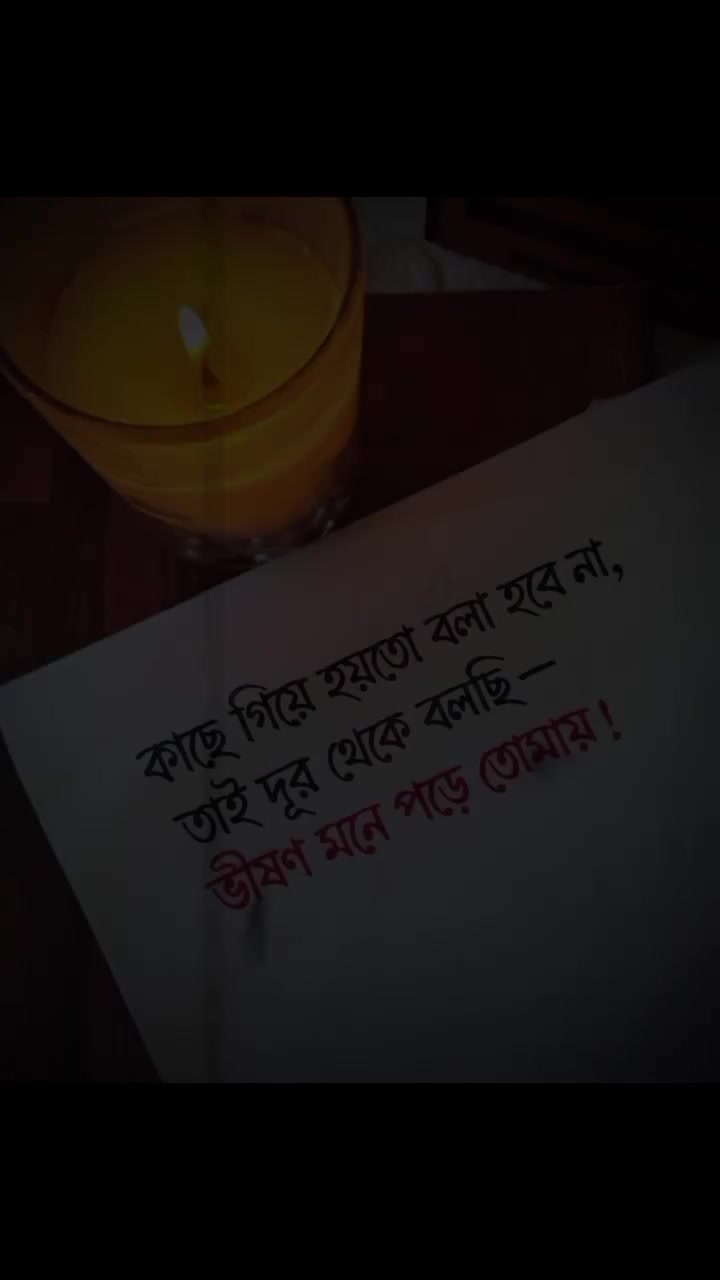 কাছে গিয়ে হয়তো বলা হবে না,
তাই দূর থেকে বলছি —
ভীষণ মনে পড়ে তোমায় !